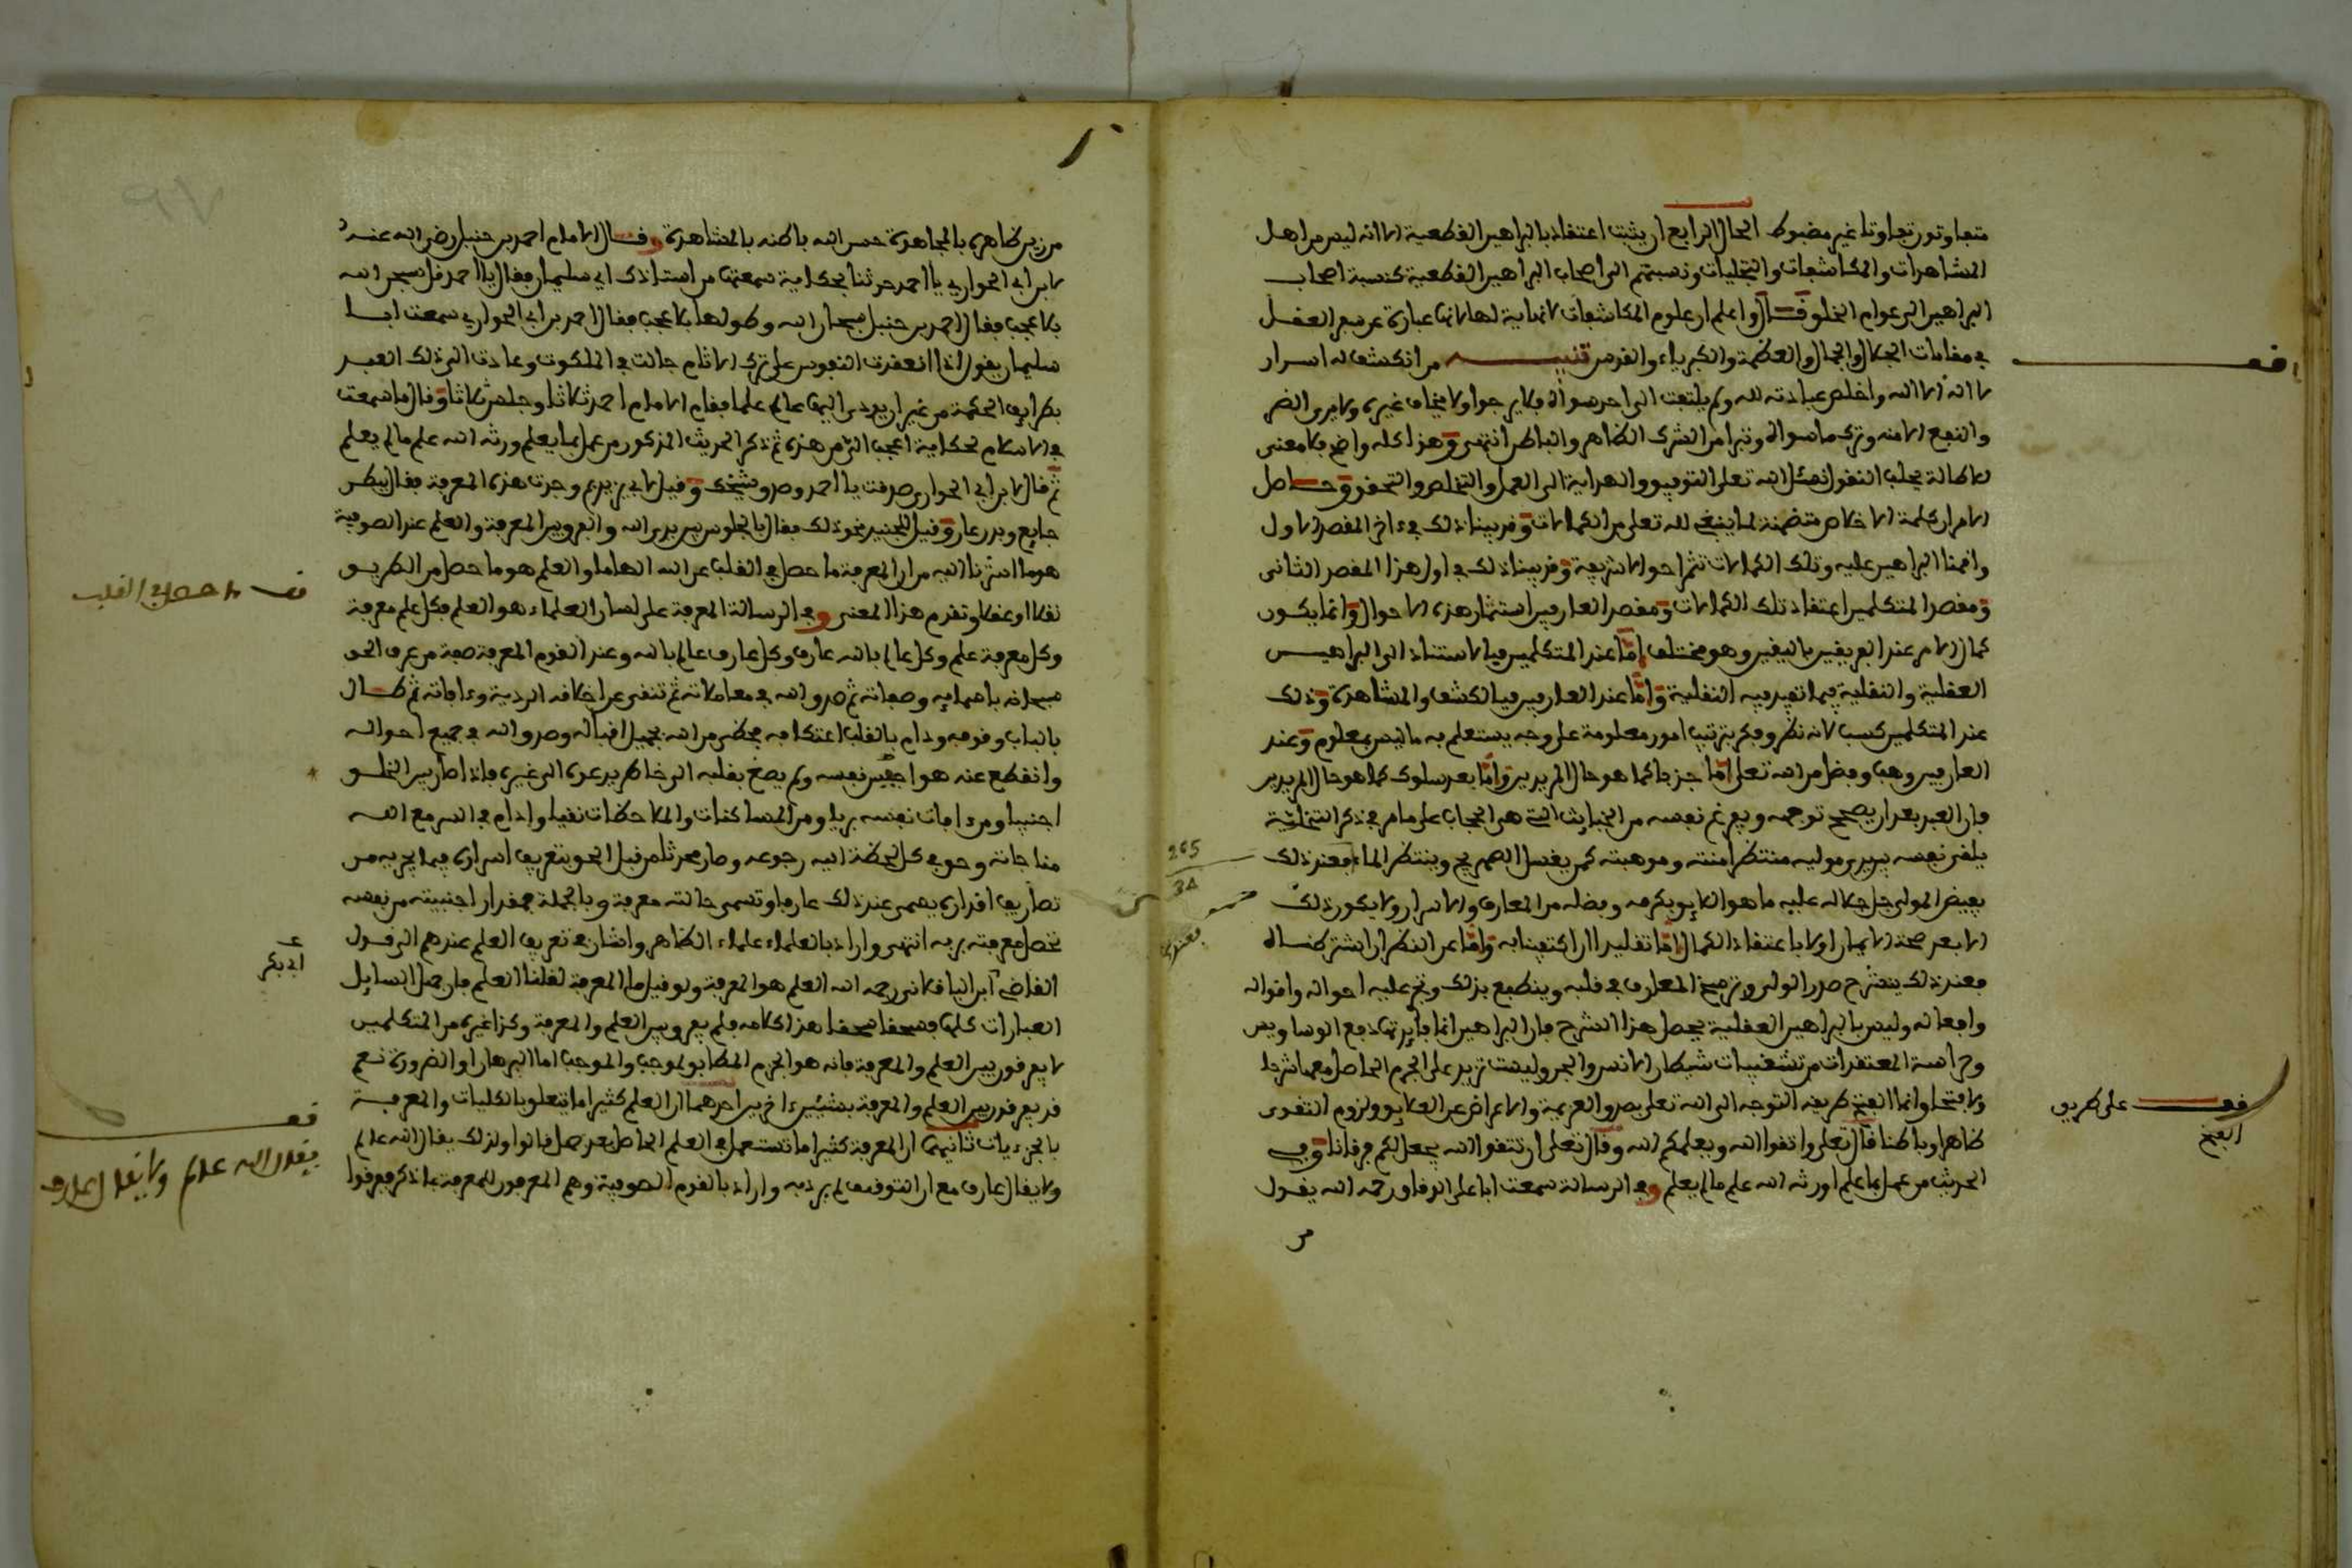 متفاوتون تفاوتا غير مضبوط الحال الرابع ان يثبت اعتقاده بالبراهين القطعية الا انه ليس من اهل
المشاهدات والمكاشفات والتجليات ونسبتهم الى اصحاب البراهين القطعية كنسبة اصحاب
البراهين الى عوام الخلق قال واعلم ان علوم المكاشفات لا نهاية لها لانها عبارة عن سير العقل
في مقامات الجلال والجمال والعظمة والكبرياء والقدس تنبيه من انكشف له اسرار
لا اله الا الله واخلص عبادته لله ولم يلتفت الى احد سواه فلا يرجوا ولا يخاف غيره ولا يرى الضر
والنفع الا منه وترك ما سواه وتبرا من الشرك الظاهر والباطن انتهى وهذا كله واضح فلا معنى
للاطالة بجلب النقول نسئل الله تعلى التوفيق والهداية الى العمل والتخلص والتحقق وحاصل
الامر ان كلمة الاخلاص متضمنة لما ينبغي لله تعلى من الكمالات وقد بينا ذلك في ءاخر المقصد الاول
واقمنا البراهين عليه وتلك الكمالات تثمر احوالا شريفة وقد بينا ذلك في اول هذا المقصد الثانى
ومقصد المتكلمين اعتقاد تلك الكمالات ومقصد العارفين استثمار هذه الاحوال وانما يكون
كمال الامر عند الفريقين باليقين وهو مختلف اما عند المتكلمين فبالاستناد الى البراهين
العقلية والنقلية فيما تفيد فيه النقلية واما عند العارفين فبالكشف والمشاهدة وذلك
عند المتكلمين كسب لانه نظر وفكر بترتيب امور معلومة على وجه يستعلم به ما ليس بمعلوم وعند
العارفين وهب وفضل من الله تعلى اما جزبا كما هو حال المريدين واما بعد سلوك كما هو حال المريدين
فان العبد بعد ان يصحح توجهه ويفرغ نفسه من الخبايث التي هي الحجاب على ما مر في ذكر التخلية
يلقى نفسه بين يدي موليه منتظرا منته وموهبته كمن يغسل الصهريج وينتظر الماء فعند ذلك
يفيض المولى جل جلاله عليه ما هو اللايق بكرمه وفضله من المعارف والاسرار ولا يكون ذلك
الا بعد صحة الايمان اولا باعتقاد الكمال اما تقليدا ان اكتفينا به واما عن النظر ان اشترطناه
فعند ذلك ينشرح صدر الولي وترسخ المعارف في قلبه وينطبع بذلك وتجرى عليه احواله واقواله
وافعاله وليس بالبراهين العقلية يحصل هذا الشرح فان البراهين انما فايدتها دفع الوساويس
وحراسة المعتقدات من تشغيبات شيطان الانس والجن وليست تزيد على الجزم الحاصل معها شرحا
ولا فتحا وانما الفتح طريقه التوجه الى الله تعلى بصدق العزيمة والاعراض عن العلايق ولزوم التقوى
ظاهرا وباطنا قال تعلى واتقوا الله ويعلمكم الله وقال تعلى ان تتقوا الله يجعل لكم فرقانا وفي
الحديث من عمل بما علم اورثه الله علم ما لم يعلم وفي الرسالة سمعت ابا على الدقاق رحمه الله يقول
من
قف
قف على طريق
الفتح
265
38
من زين ظاهره بالمجاهدة حسن الله باطنه بالمشاهدة وقال الامام احمد بن حنبل رضي الله عنه
لابن ابي الحواري يا احمد حدثنا بحكاية سمعتها من استاذك ابي سليمان فقال يا احمد قل سبحن الله
بلا عجب فقال احمد بن حنبل سبحان الله وطولها بلا عجب فقال احمد بن ابي الحواري سمعت ابا
سليمان يقول اذا انعقدت النفوس على ترك الاثام جالت في الملكوت وعادت الى ذلك العبد
بطرايف الحكمة من غير ان يودى اليها عالم علما فقام الامام احمد ثلاثا وجلس ثلاثا وقال ما سمعت
في الاسلام بحكاية اعجب الي من هذه ثم ذكر الحديث المذكور من عمل بما يعلم ورثه الله علم ما لم يعلم
ثم قال لابن ابي الحواري صدقت يا احمد وصدق شيخك وقيل لابي يزيد بم وجدت هذه المعرفة فقال ببطن
جايع وبدن عار وقيل للجنيد نحو ذلك فقال بالجلوس بين يدي الله والفرق بين المعرفة والعلم عند الصوفية
هو ما اشرنا اليه من ان المعرفة ما حصل في القلب عن الله الهاما والعلم هو ما حصل من الطريق
نقلا او عقلا وتقدم هذا المعنى وفي الرسالة المعرفة على لسان العلماء هو العلم فكل علم معرفة
وكل معرفة علم وكل عالم بالله عارف وكل عارف عالم بالله وعند القوم المعرفة صفة من عرف الحق
سبحانه باسمايه وصفاته ثم صدق الله في معاملاته ثم تنقى عن اخلاقه الردية وءافاته ثم طال
بالباب وقوفه ودام بالقلب اعتكافه فحظى من الله بجميل اقباله وصدق الله في جميع احواله
وانقطع عنه هواجس نفسه ولم يصغ بقلبه الى خاطر يدعوه الى غيره فاذا صار بين الخلق
اجنبيا ومن ءافات نفسه بريا ومن المساكنات والملاحظات نقيا ودام في السر مع الله
مناجاته وحق في كل لحظة اليه رجوعه وصار محدثا من قبل الحق بتعريف اسراره فيما يجريه من
تصاريف اقداره يسمى عند ذلك عارفا وتسمى حالته معرفة وبالجملة فبمقدار اجنبيته من نفسه
تحصل معرفته بربه انتهى واراد بالعلماء علماء الظاهر واشار في تعريف العلم عندهم الى قول
القاضي ابن الباقلانى رحمه الله العلم هو المعرفة ولو قيل ما المعرفة لقلنا العلم فان جهل السايل
العبارات كلها فسحقا سحقا هذا كلامه فلم يفرق بين العلم والمعرفة وكذا غيره من المتكلمين
لا يفرقون بين العلم والمعرفة فانه هو الجزم المطابق لموجب والموجب اما البرهان او الضرورة نعم
قد يفرقون بين العلم والمعرفة بشيئين ءاخرين احدهما ان العلم كثيرا ما يتعلق بالكليات والمعرفة
بالجزءيات ثانيهما ان المعرفة كثيرا ما تستعمل في العلم الحاصل بعد جهل قالوا ولذلك يقال الله عالم
ولا يقال عارف مع ان التوقيف لم يرد به واراد بالقوم الصوفية وهم المعرفون للمعرفة بما ذكر فعرفوا
قف ما حصل في القلب
ابي بكر
قف
يقال الله عالم ولا يقال عارف
٩٧